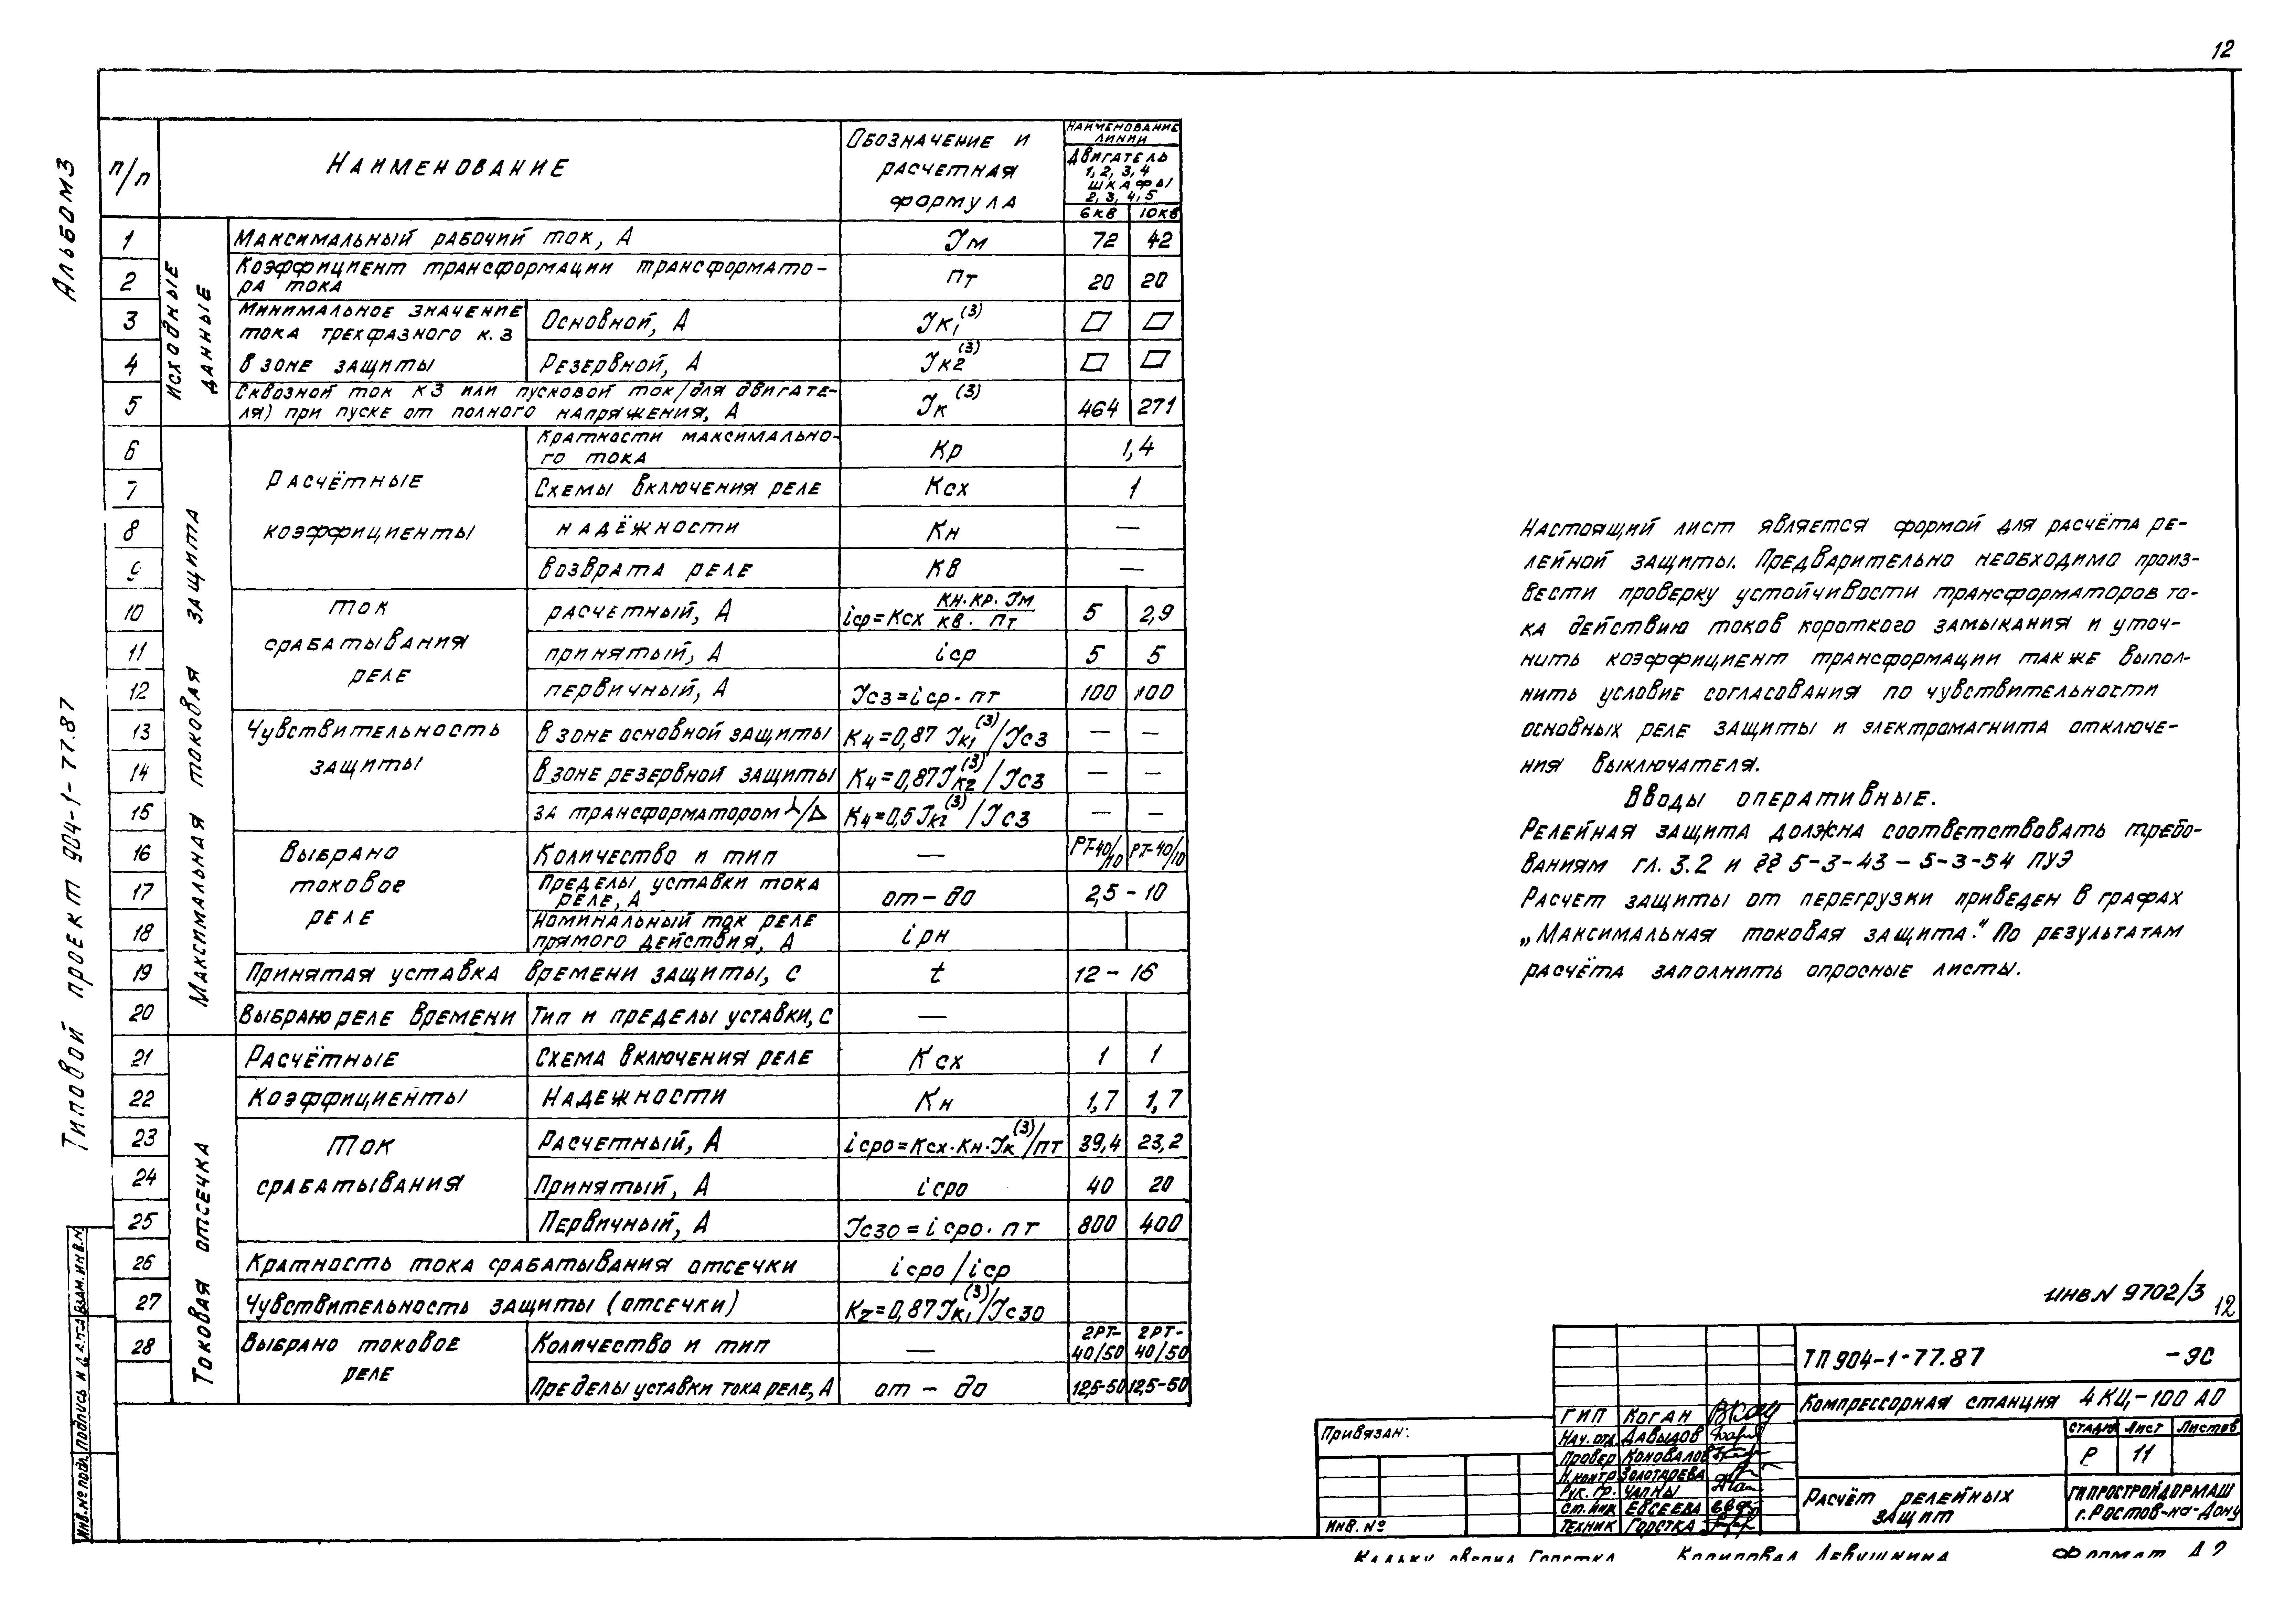 12
Альбом 3
Типовой проект 904-1-77.87
п/п
Наименование
Обозначение и
расчетная
формула
Наименование
линии
Двигатель
1, 2, 3, 4
шкафы
2, 3, 4, 5
6кв 10кв
Исходные данные
1 Максимальный рабочий ток, А Iм 72 42
2 Коэффициент трансформации трансформато-
ра тока пт 20 20
Минимальное значение
тока трехфазного к.з
в зоне защиты
3 Основной, А Iк1(3) □ □
4 Резервной, А Iк2(3) □ □
5 Сквозной ток кз или пусковой ток /для двигате-
ля) при пуске от полного напряжения, А Iк(3) 464 271
Максимальная токовая защита
Расчётные
коэффициенты
6 Кратности максимально-
го тока Кр 1,4
7 Схемы включения реле Ксх 1
8 надёжности Кн —
9 возврата реле Кв —
Ток
срабатывания
реле
10 расчетный, А iср=Ксх Кн·Кр·Iм / Кв·пт 5 2,9
11 принятый, А iср 5 5
12 первичный, А Iсз=iср·пт 100 100
Чувствительность
защиты
13 В зоне основной защиты Кч=0,87 Iк1(3)/Iсз — —
14 В зоне резервной защиты Кч=0,87Iк2(3)/Iсз — —
15 за трансформатором ⅄/Δ Кч=0,5Iк2(3)/Iсз — —
Выбрано
токовое
реле
16 Количество и тип — РТ-40/10 РТ-40/10
17 Пределы уставки тока
реле, А от – до 2,5 - 10
18 Номинальный ток реле
прямого действия, А iрн
19 Принятая уставка времени защиты, с t 12 - 16
20 Выбрано реле времени Тип и пределы уставки, с —
Токовая отсечка
Расчётные
Коэффициенты
21 Схема включения реле Ксх 1 1
22 Надежности Кн 1,7 1,7
Ток
срабатывания
23 Расчетный, А iсро=Ксх·Кн·Iк(3)/пт 39,4 23,2
24 Принятый, А iсро 40 20
25 Первичный, А Iсзо=iсро·пт 800 400
26 Кратность тока срабатывания отсечки iсро/iср
27 Чувствительность защиты (отсечки) Кz=0,87Iк1(3)/Iсзо
28 Выбрано токовое
реле
Количество и тип — 2РТ-40/50 2РТ-40/50
Пределы уставки тока реле, А от – до 12,5-50 12,5-50
Настоящий лист является формой для расчёта ре-
лейной защиты. Предварительно необходимо произ-
вести проверку устойчивости трансформаторов то-
ка действию токов короткого замыкания и уточ-
нить коэффициент трансформации также выпол-
нить условие согласования по чувствительности
основных реле защиты и электромагнита отключе-
ния выключателя.
Вводы оперативные.
Релейная защита должна соответствовать требо-
ваниям гл. 3.2 и §§ 5-3-43 – 5-3-54 ПУЭ
Расчет защиты от перегрузки приведен в графах
„Максимальная токовая защита." По результатам
расчёта заполнить опросные листы.
инв N 9702/3
12
ТП 904-1-77.87 -ЭС
Компрессорная станция 4КЦ-100 АО
Стадия Лист Листов
Р 11
Расчёт релейных
защит
Гипростройдормаш
г. Ростов-на-Дону
ГИП Коган
Нач. отд. Давыдов
Провер Коновалов
Н.контр Золотарева
Рук. гр. Чапны
Ст. инж Евсеева
Техник Горстка
Привязан:
Инв. №
Инв. № подл. Подпись и дата Взам. инв. №
Кальку сверил Горстка Копировал Левушкина Формат А2